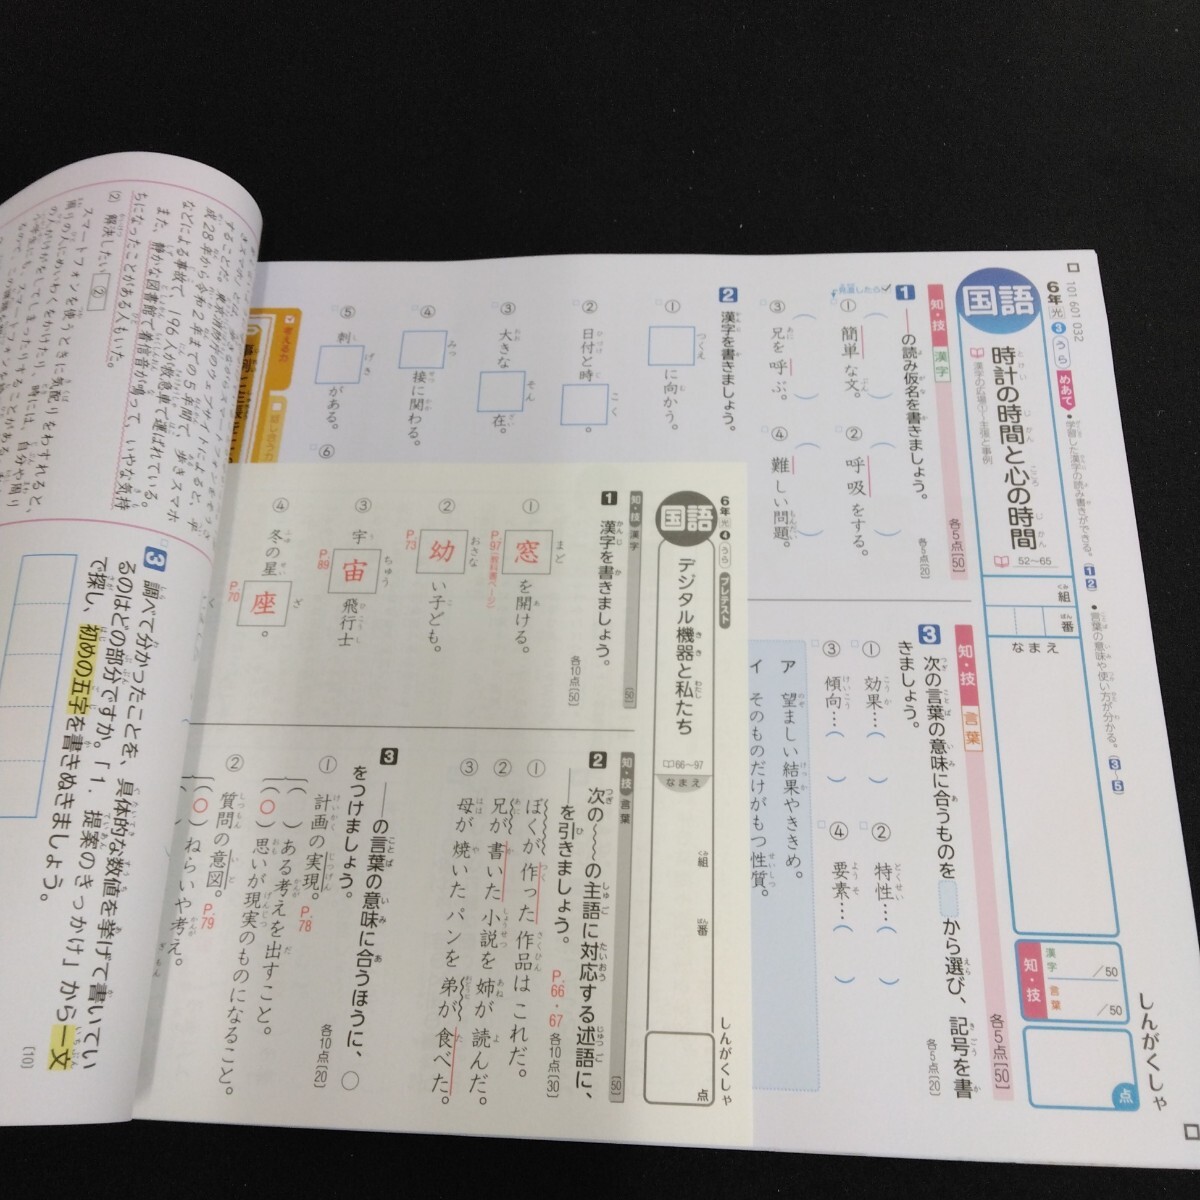 101 601 032
6年 光 3 うら
国語
めあて
・学習した漢字の読み書きができる。 1 2
・言葉の意味や使い方が分かる。 3〜5
時計の時間と心の時間
漢字の広場①/主張と事例
52〜65
組
番
なまえ
知・技
漢字 /50
言葉 /50
点
しんがくしゃ
知・技 漢字
各5点[50]
1 ――の読み仮名を書きましょう。
各5点[20]
① 簡単な文。
② 呼吸をする。
③ 兄を呼ぶ。
④ 難しい問題。
2 漢字を書きましょう。
① つくえ に向かう。
② 日付と時 こく 。
③ 大きな そん 在。
④ みっ 接に関わる。
⑤ 刺 げき がある。
⑥
知・技 言葉
各5点[50]
3 次の言葉の意味に合うものを から選び、記号を書きましょう。
各5点[20]
① 効果…( )
② 特性…( )
③ 傾向…( )
④ 要素…( )
ア 望ましい結果やききめ。
イ そのものだけがもつ性質。
6年 光 4 うら プレテスト
国語
デジタル機器と私たち
66〜97
なまえ
組
番
点
しんがくしゃ
知・技 漢字
[50]
1 漢字を書きましょう。
各10点[50]
① 窓 を開ける。
P.97(教科書ページ)
② 幼 い子ども。
P.73
③ 宇 宙 飛行士
P.89
④ 冬の星 座 。
P.70
知・技 言葉
[50]
2 次の〜〜〜の主語に対応する述語に、――を引きましょう。
P.66・67
各10点[30]
① ぼくが作った作品はこれだ。
② 兄が書いた小説を姉が読んだ。
③ 母が焼いたパンを弟が食べた。
3 ――の言葉の意味に合うほうに、○をつけましょう。
各10点[20]
① 計画の実現。
P.78
( )ある考えを出すこと。
(○)思いが現実のものになること。
② 質問の意図。
P.79
(○)ねらいや考え。
成28年から令和2年までの5年間で、歩きスマホ
などによる事故で、196人が救急車で運ばれている。
また、静かな図書館で着信音が鳴って、いやな気持
ちになったことがある人もいた。
(2) 解決したい ②
スマートフォンを使うときに気配りをわすれると、
周りの人にめいわくをかけたり、時には、自分や周り
3 調べて分かったことを、具体的な数値を挙げて書いているのはどの部分ですか。「1.提案のきっかけ」から一文で探し、初めの五字を書きぬきましょう。
[10]